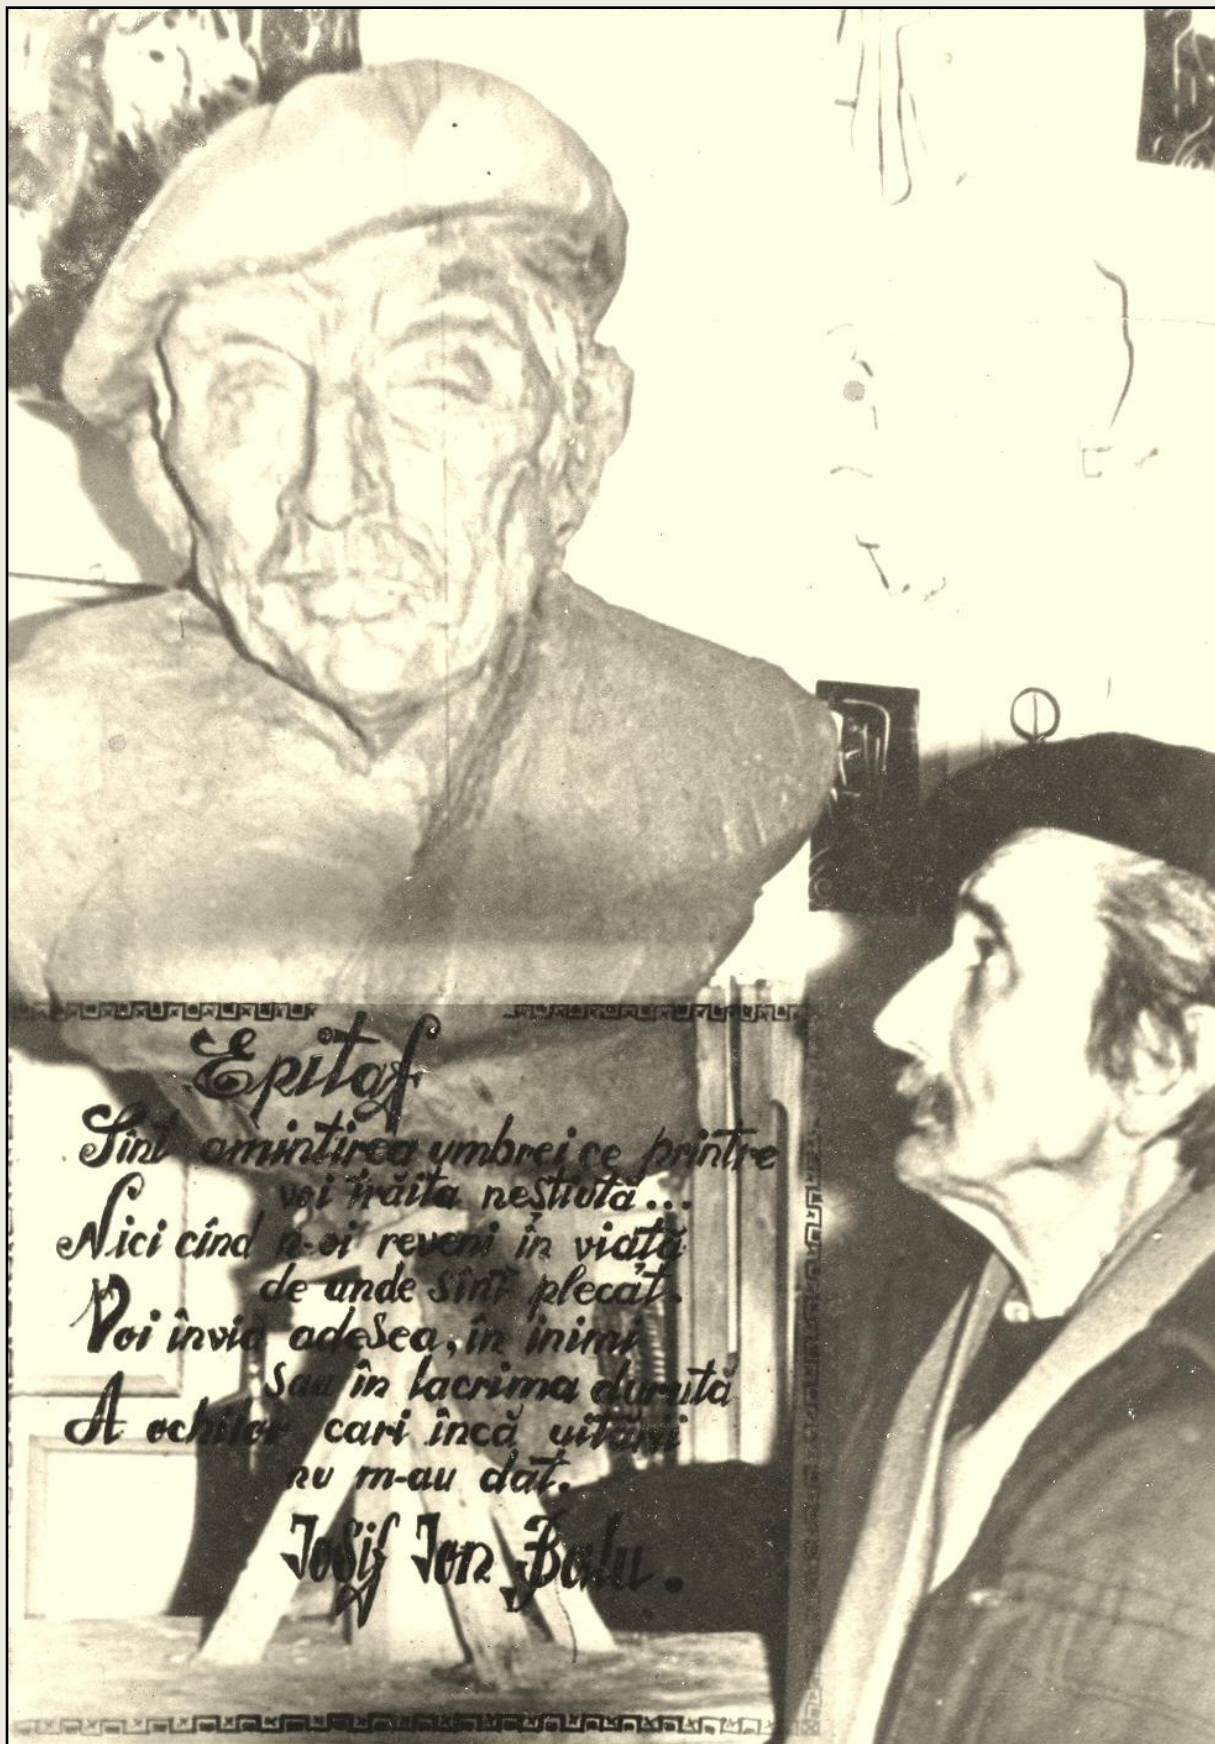 Epitaf
Sînt amintirea umbrei ce printre
voi trăita neștiută...
Nici cînd n-oi reveni în viață
de unde sînt plecat.
Voi învia adesea, în inimi
Sau în lacrima durută
A ochilor cari încă uitării
nu m-au dat.
Iosif Ion Balu.